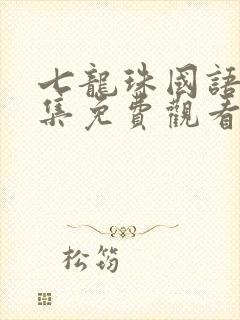 七龍珠國語
集免費觀看
松筠